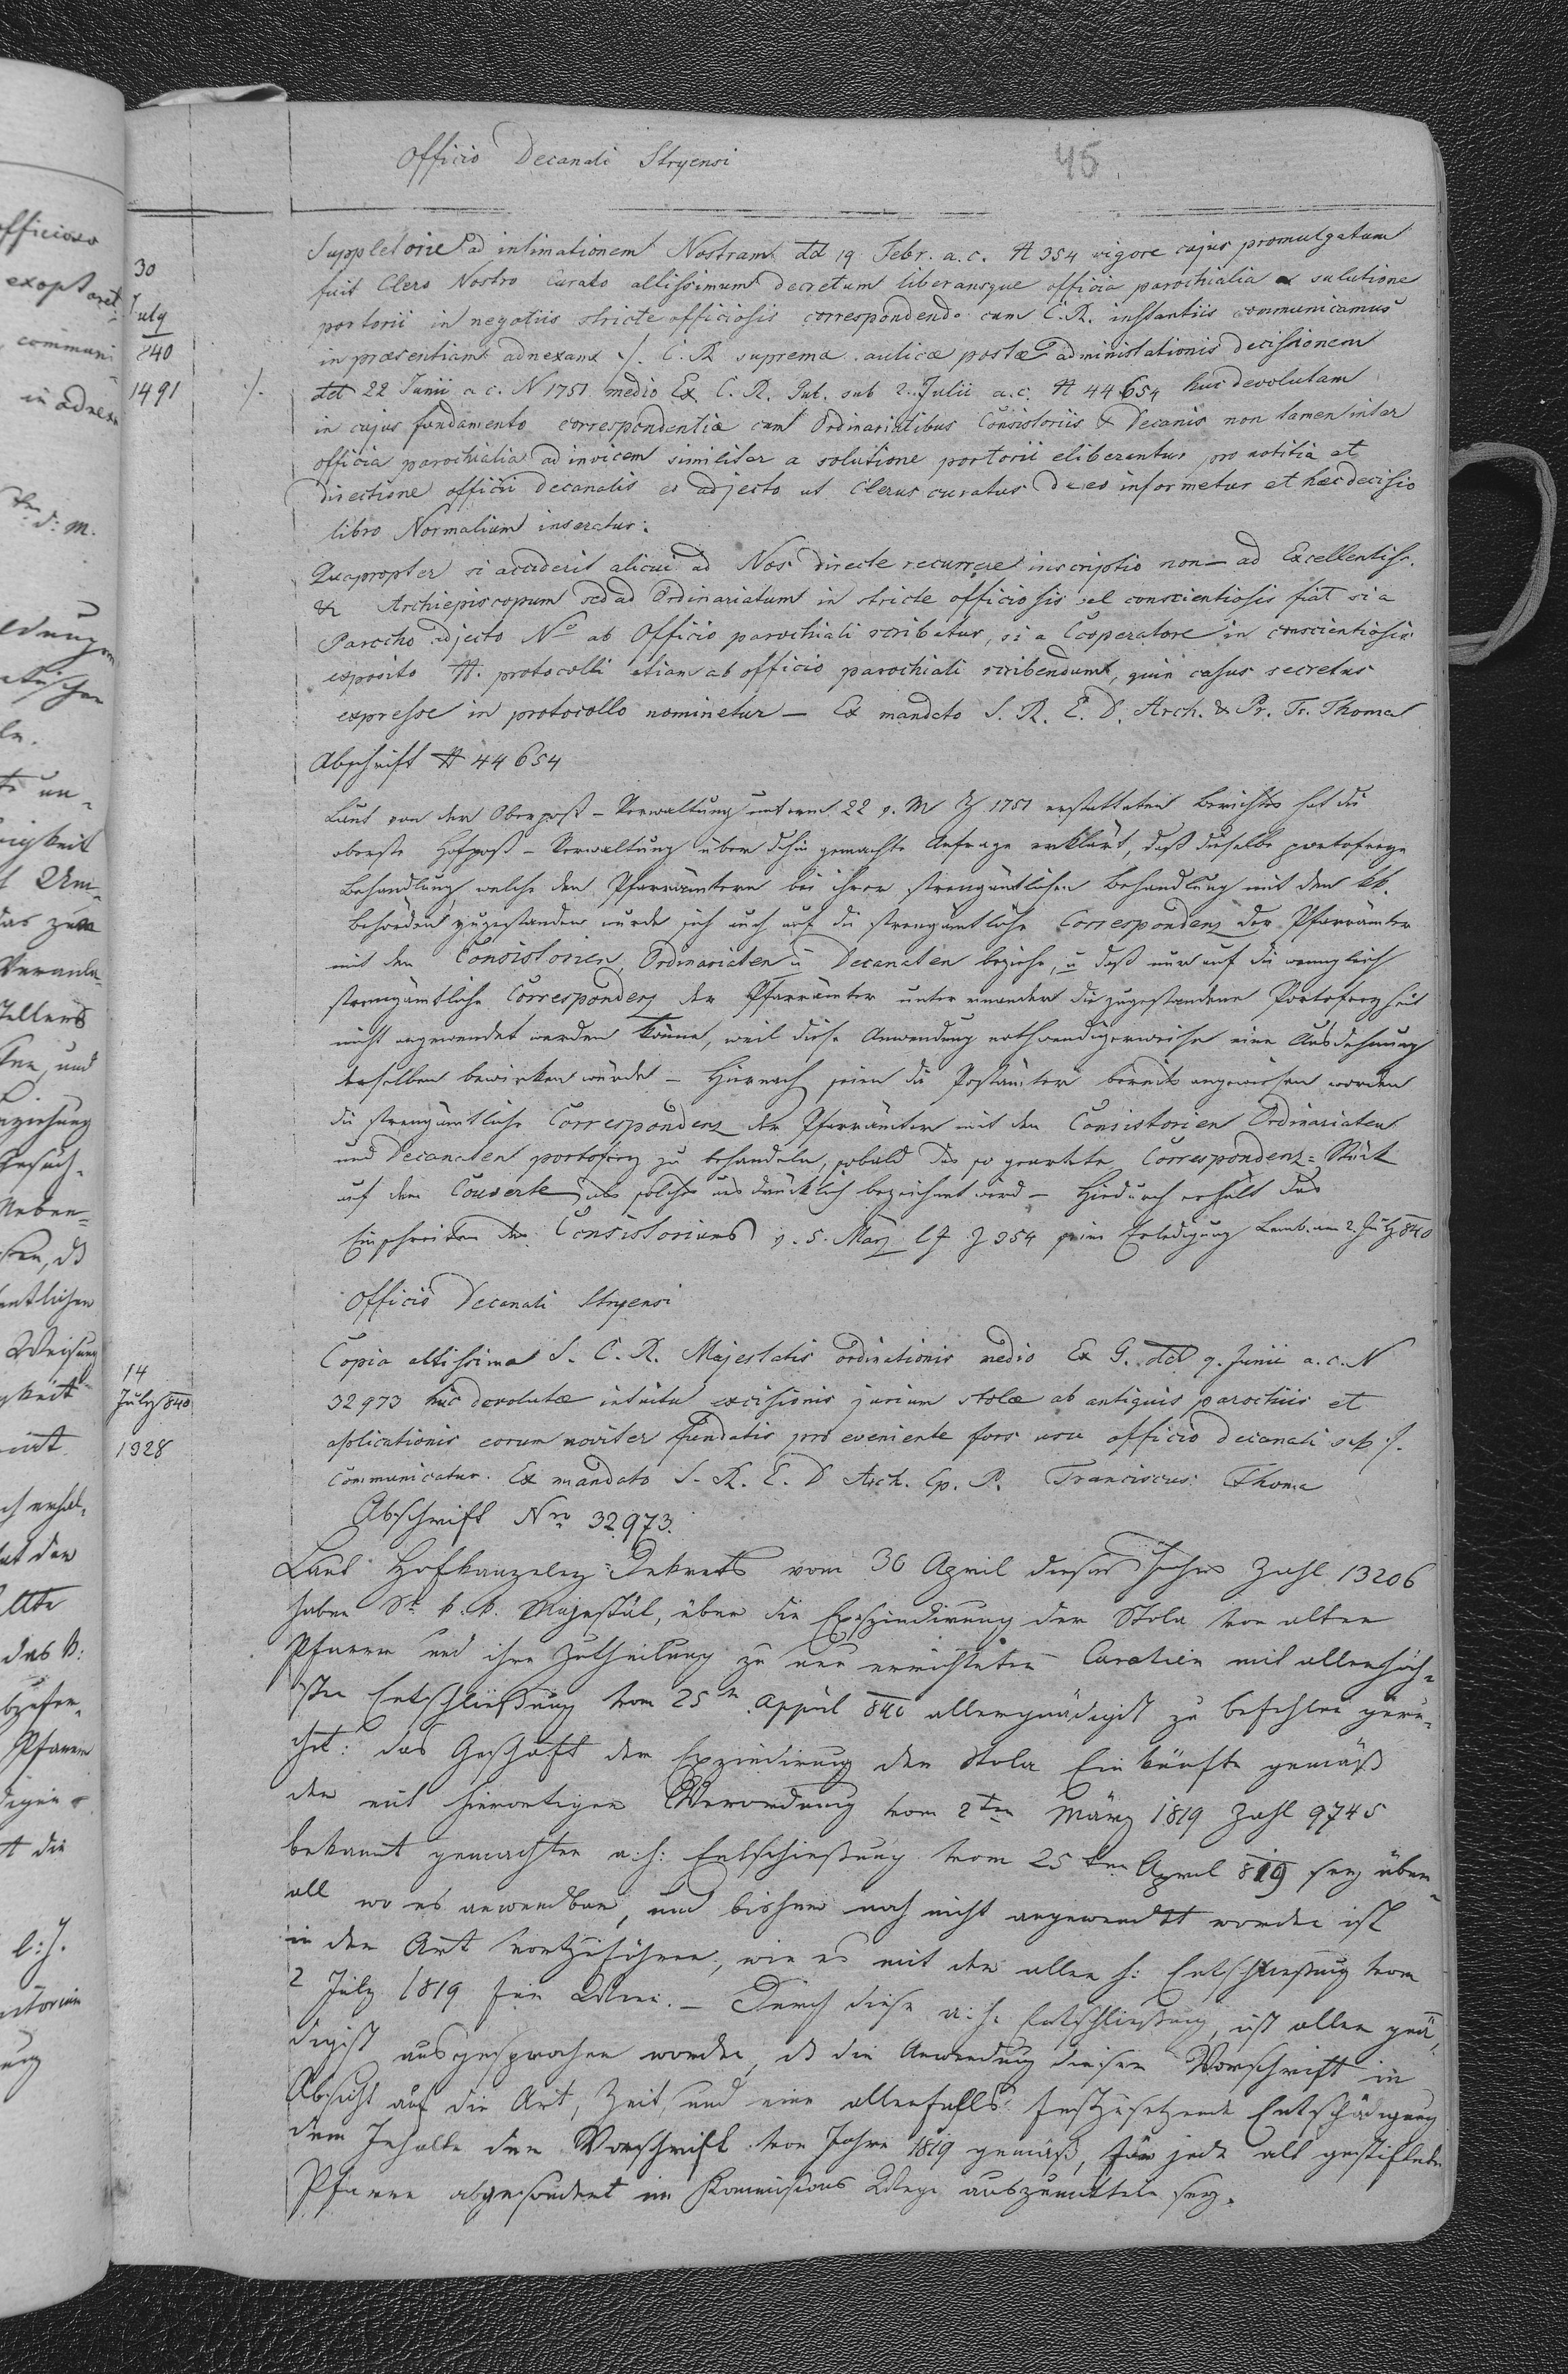 Officio Decanali Stryensi
45
30
July
840
1491
Suppletorie ad intimationem Nostram dd 19 Febr. a. c. # 354 vigore cujus promulgatum
fuit Clero Nostro Curato altissimum decretum liberansque officia parochialia a solutione
portorii in negotiis stricte officiosis correspondendo cum C. R. instantiis communicamus
in praesentiam adnexam ./. C. R. suprema aulicae postae administrationis decisionem
./. dd 22 Junii a c. N 1751 medio Ex C. R. Gub. sub 2. Julii a. c. # 44654 huc devolutam
in cujus fundamento correspondentiae cum Ordinariatibus Consistoriis & Decanis non tamen inter
officia parochialia ad invicem similiter a solutione portorii eliberantur pro notitia et
directione officii decanalis eo adjecto ut Clerus curatus de eo informetur et haec decisio
libro Normalium inseratur.
Quapropter si acciderit alicui ad Nos directe recurrere inscriptio non – ad Excellentiss.
& Archiepiscopum sed ad Ordinariatum in stricte officiosis vel conscientiosis fiat si a
Parocho adjecto No ab Officio parochiali scribatur, si a Cooperatore in conscientiosis
exposito #. protocolli etiam ab officio parochiali scribendum, quin casus secretus
expresse in protocollo nominetur – Ex mandato S. R. E. D. Arch. & Pr. Fr. Thoma
Abschrift # 44654
Laut von der Oberpost-Verwaltung unterm 22 v. M Z 1751 erstatteten Berichtes hat die
oberste Hofpost-Verwaltung über dahin gemachte Anfrage erklärt, daß dieselbe portofreye
Behandlung, welche den Pfarrämtern bei ihrer strengämtlichen Behandlung mit den kk.
Behörden zugestanden wurde sich auch auf die strengämtliche Correspondenz der Pfarrämter
mit den Consistorien, Ordinariaten u Decanaten beziehe, u daß nur auf die wenngleich
strengämtliche Correspondenz der Pfarrämter unter einander die zugestandene Portofreyheit
nicht angewendet werden könne, weil diese Anwendung nothwendigerweise eine Ausdehnung
derselben bewirken würde – Hiernach seien die Postämter bereits angewiesen worden
die strengämtliche Correspondenz der Pfarrämter mit den Consistorien Ordinariaten
und Decanaten portofrey zu behandeln, sobald das so geartete Correspondenz-Stück
auf dem Couverte als solches ausdrücklich bezeichnet wird – Hiedurch erhält das
Einschreiten des Consistoriums v. 5. März l J Z 354 seine Erledigung Lemb. am 2. July 840
Officio Decanali Stryensi
14
July 840
1328
Copia altissima S. C. R. Majestatis ordinationis medio Ex G. dd 9. Junii a. c. N
32973 huc devolutae intuitu excisionis jurium stolae ab antiquis parochiis et
applicationis eorum noviter fundatis pro eveniente fors usu officio decanali sub ./.
communicatur. Ex mandato S. R. E. D Arch. Ep. P. Franciscus Thoma
Abschrift Nro 32973.
Laut Hofkanzeley-Dekrets vom 30 April dieses Jahres Zahl 13206
haben Sr k. k. Majestät, über die Exszindirung der Stola von alten
Pfarren und ihre Zutheilung zu neu errichteten Curatien mit allerhöch-
ster Entschließung vom 25ten April 840 allergnädigst zu befehlen geru-
het: das Geschäft der Exzindirung der Stola Einkünfte gemäß
der mit hierortigen Verordnung vom 2ten März 1819 Zahl 9745
bekannt gemachten a: h: Entschließung vom 25ten April 819 sey über-
all wo es anwendbar, und bisher noch nicht angewendet worden ist
in der Art fortzuführen, wie es mit der aller h: Entschließung vom
2 July 1819 – Durch diese a: h. Entschließung, ist aller gnä-
digst ausgesprochen worden, dß die Anwendung dieser Vorschrift in
Absicht auf die Art, Zeit, und eine allenfalls festzusetzende Entschädigung
dem Inhalte der Vorschrift vom Jahre 1819 gemäß, für jede alt gestiftete
Pfarre abgesondert im Kommissions Wege auszumitteln sey.